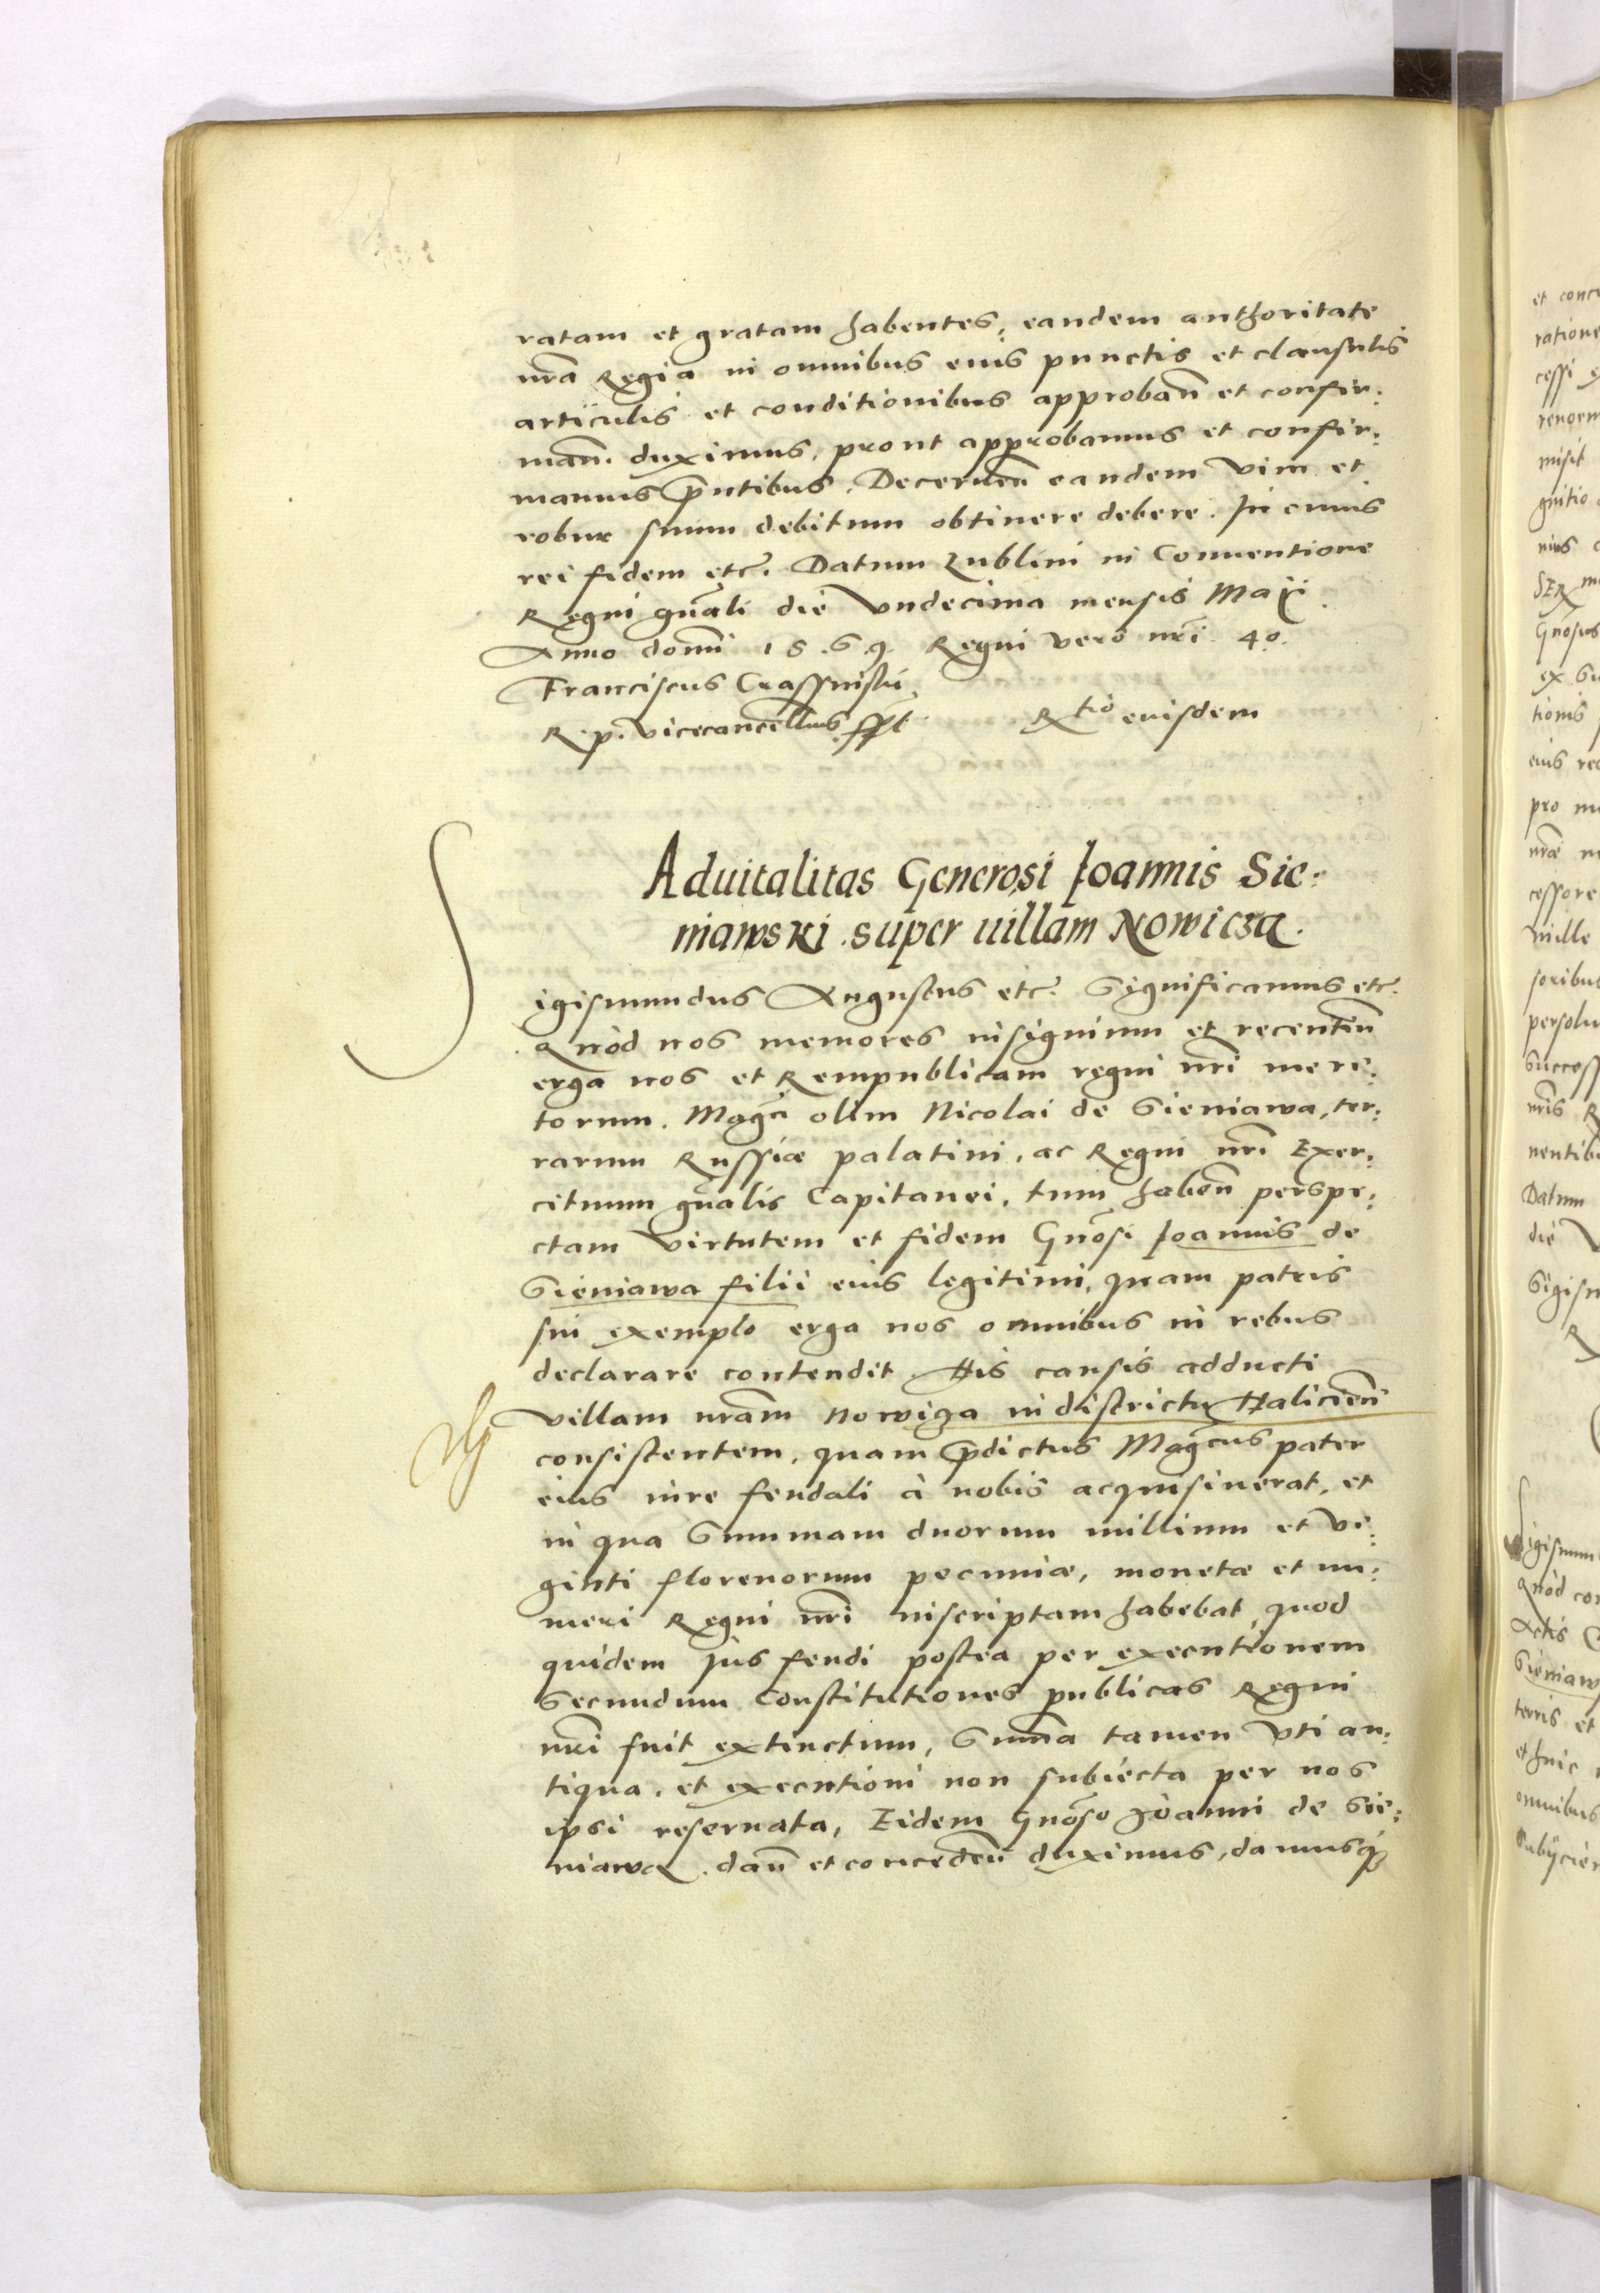 ratam et gratam habentes, eandem authoritate
nrã Regia in omnibus eius punctis et clausulis
articulis et conditionibus approbañ et confir:
mañ. duximus, prout approbamus et confir:
mamus p̃ntibus. Decerneñ eandem vim et
robur suum debitum obtinere debere. In cuius
rei fidem etc. Datum Lublini in Conuentione
Regni gñali die Vndecima mensis Maÿ
Anno domĩ 1569. Regni vero nr̃i 40.
Franciscus Crassinski
R. p. vicecancellius. sspt
Rtio euisdem
Aduitalitas Generosi Joannis Sie:
niawski super uillam Nowicza.
Sigismundus Augustus etc. Significamus etc.
Quòd nos memores insignium et recentiũ
erga nos et Rempublicam regni nr̃i meri:
torum. Magcĩ olim Nicolai de Sieniawa, ter:
rarum Russiæ palatini, ac Regni nr̃i Exer:
cituum gñalis Capitanei, tum habeñ perspe:
ctam virtutem et fidem Gñosi Joannis de
Sieniawa filii eius legitimi, quam patris
sui exemplo erga nos omnibus in rebus
declarare contendit. His causis adducti
villam nrãm nowiga in districtu Halicieñ
consistentem, quam p̃dictus Magcus pater
eius iure feudali à nobis acquisiuerat, et
in qua Summam duorum millium et vi:
ginti florenorum pecuniæ, monetæ et nu:
meri Regni nr̃i inscriptam habebat, quod
quidem jus feudi postea per executionem
Secundum Constitutiones publicas Regni
nr̃i fuit extinctum, Sum̃a tamen vti an:
tiqua, et executioni non subiecta per nos
ipsi reseruata, Eidem Gñoso Joanni de Sie:
niawa dañ et concedeñ duximus, damusq̃